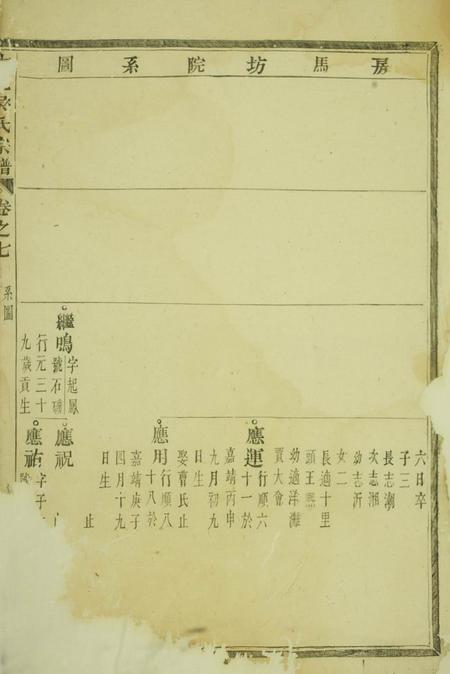 房馬坊院系圖
六日卒
子三
長志潮
次志湘
幼志沂
女二
長適十里
頭王
幼適洋灘
賈大會
應運行順六
十一於
嘉靖丙申
九月初九
日生
娶曹氏止
應用行順八
十八於
嘉靖庚子
四月十九
日生
止
繼鳴字起鳳
號石
行元三十
九歲貢生
應祝
應祐字子
氏宗譜
卷之七
系圖